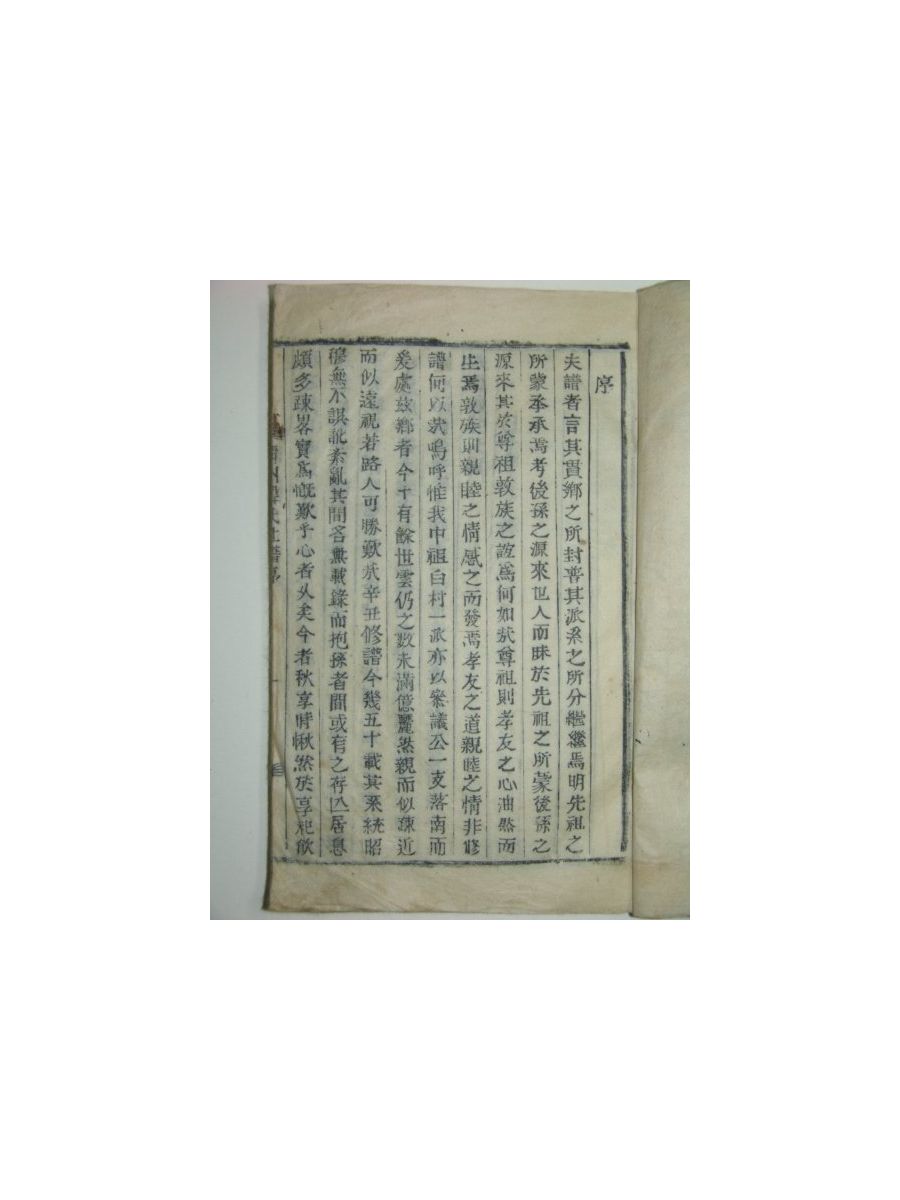 序
夫譜者言其貫鄉之所封普其派系之所分繼繼焉明先祖之
所蒙承承焉考後孫之源來也人而昧於先祖之所蒙後孫之
源來其於尊祖敦族之誼爲何如哉尊祖則孝友之心油然而
生焉敦族則親睦之情感之而發焉孝友之道親睦之情非修
譜何以哉嗚呼惟我中祖白村一派亦以察議公一支落南而
爰處玆鄉者今十有餘世雲仍之數未滿億麗然親而似疎近
而似遠視若路人可勝歎哉辛丑修譜今幾五十載其系統昭
穆無不誤訛紊亂其間各無載錄而抱孫者間或有之存亡居息
頗多疎畧實爲慨歎乎心者久矣今者秋享時愀然於享祀飮
氏世譜序